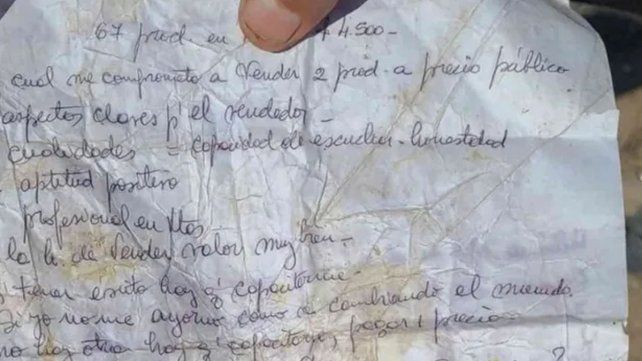 67 prod en $ 4.500-
cual me comprometo a Vender 2 prod. a precio público
aspectos claves p' el vendedor-
cualidades = capacidad de escuchar-honestidad
aptitud positivo
professional en Vtas
la h. de Vender valor muy bien-
tener exito hay q' capacitarme-
Si yo no me ayorno como va cambiando el mundo
no hay otra hay q' capacitarse, pagar 1 precio